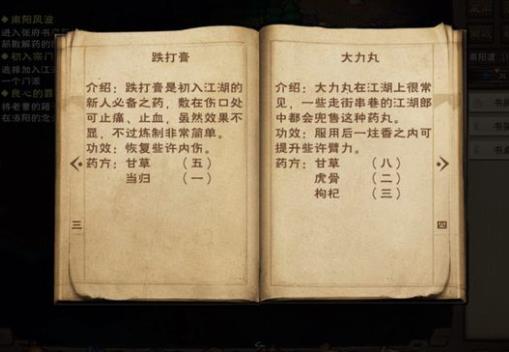 南阳风波
进入张府书
筋散解药的
初入宗门
选择加入江
一个门派
良心的罪
将老曹的籍
在洛阳的北
跌打膏
介绍：跌打膏是初入江湖的
新人必备之药，敷在伤口处
可止痛、止血，虽然效果不
显，不过炼制非常简单。
功效：恢复些许内伤。
药方：甘草 （五）
当归 （一）
三
大力丸
介绍：大力丸在江湖上很常
见，一些走街串巷的江湖郎
中都会兜售这种药丸。
功效：服用后一炷香之内可
提升些许臂力。
药方：甘草 （八）
虎骨 （二）
枸杞 （三）
四